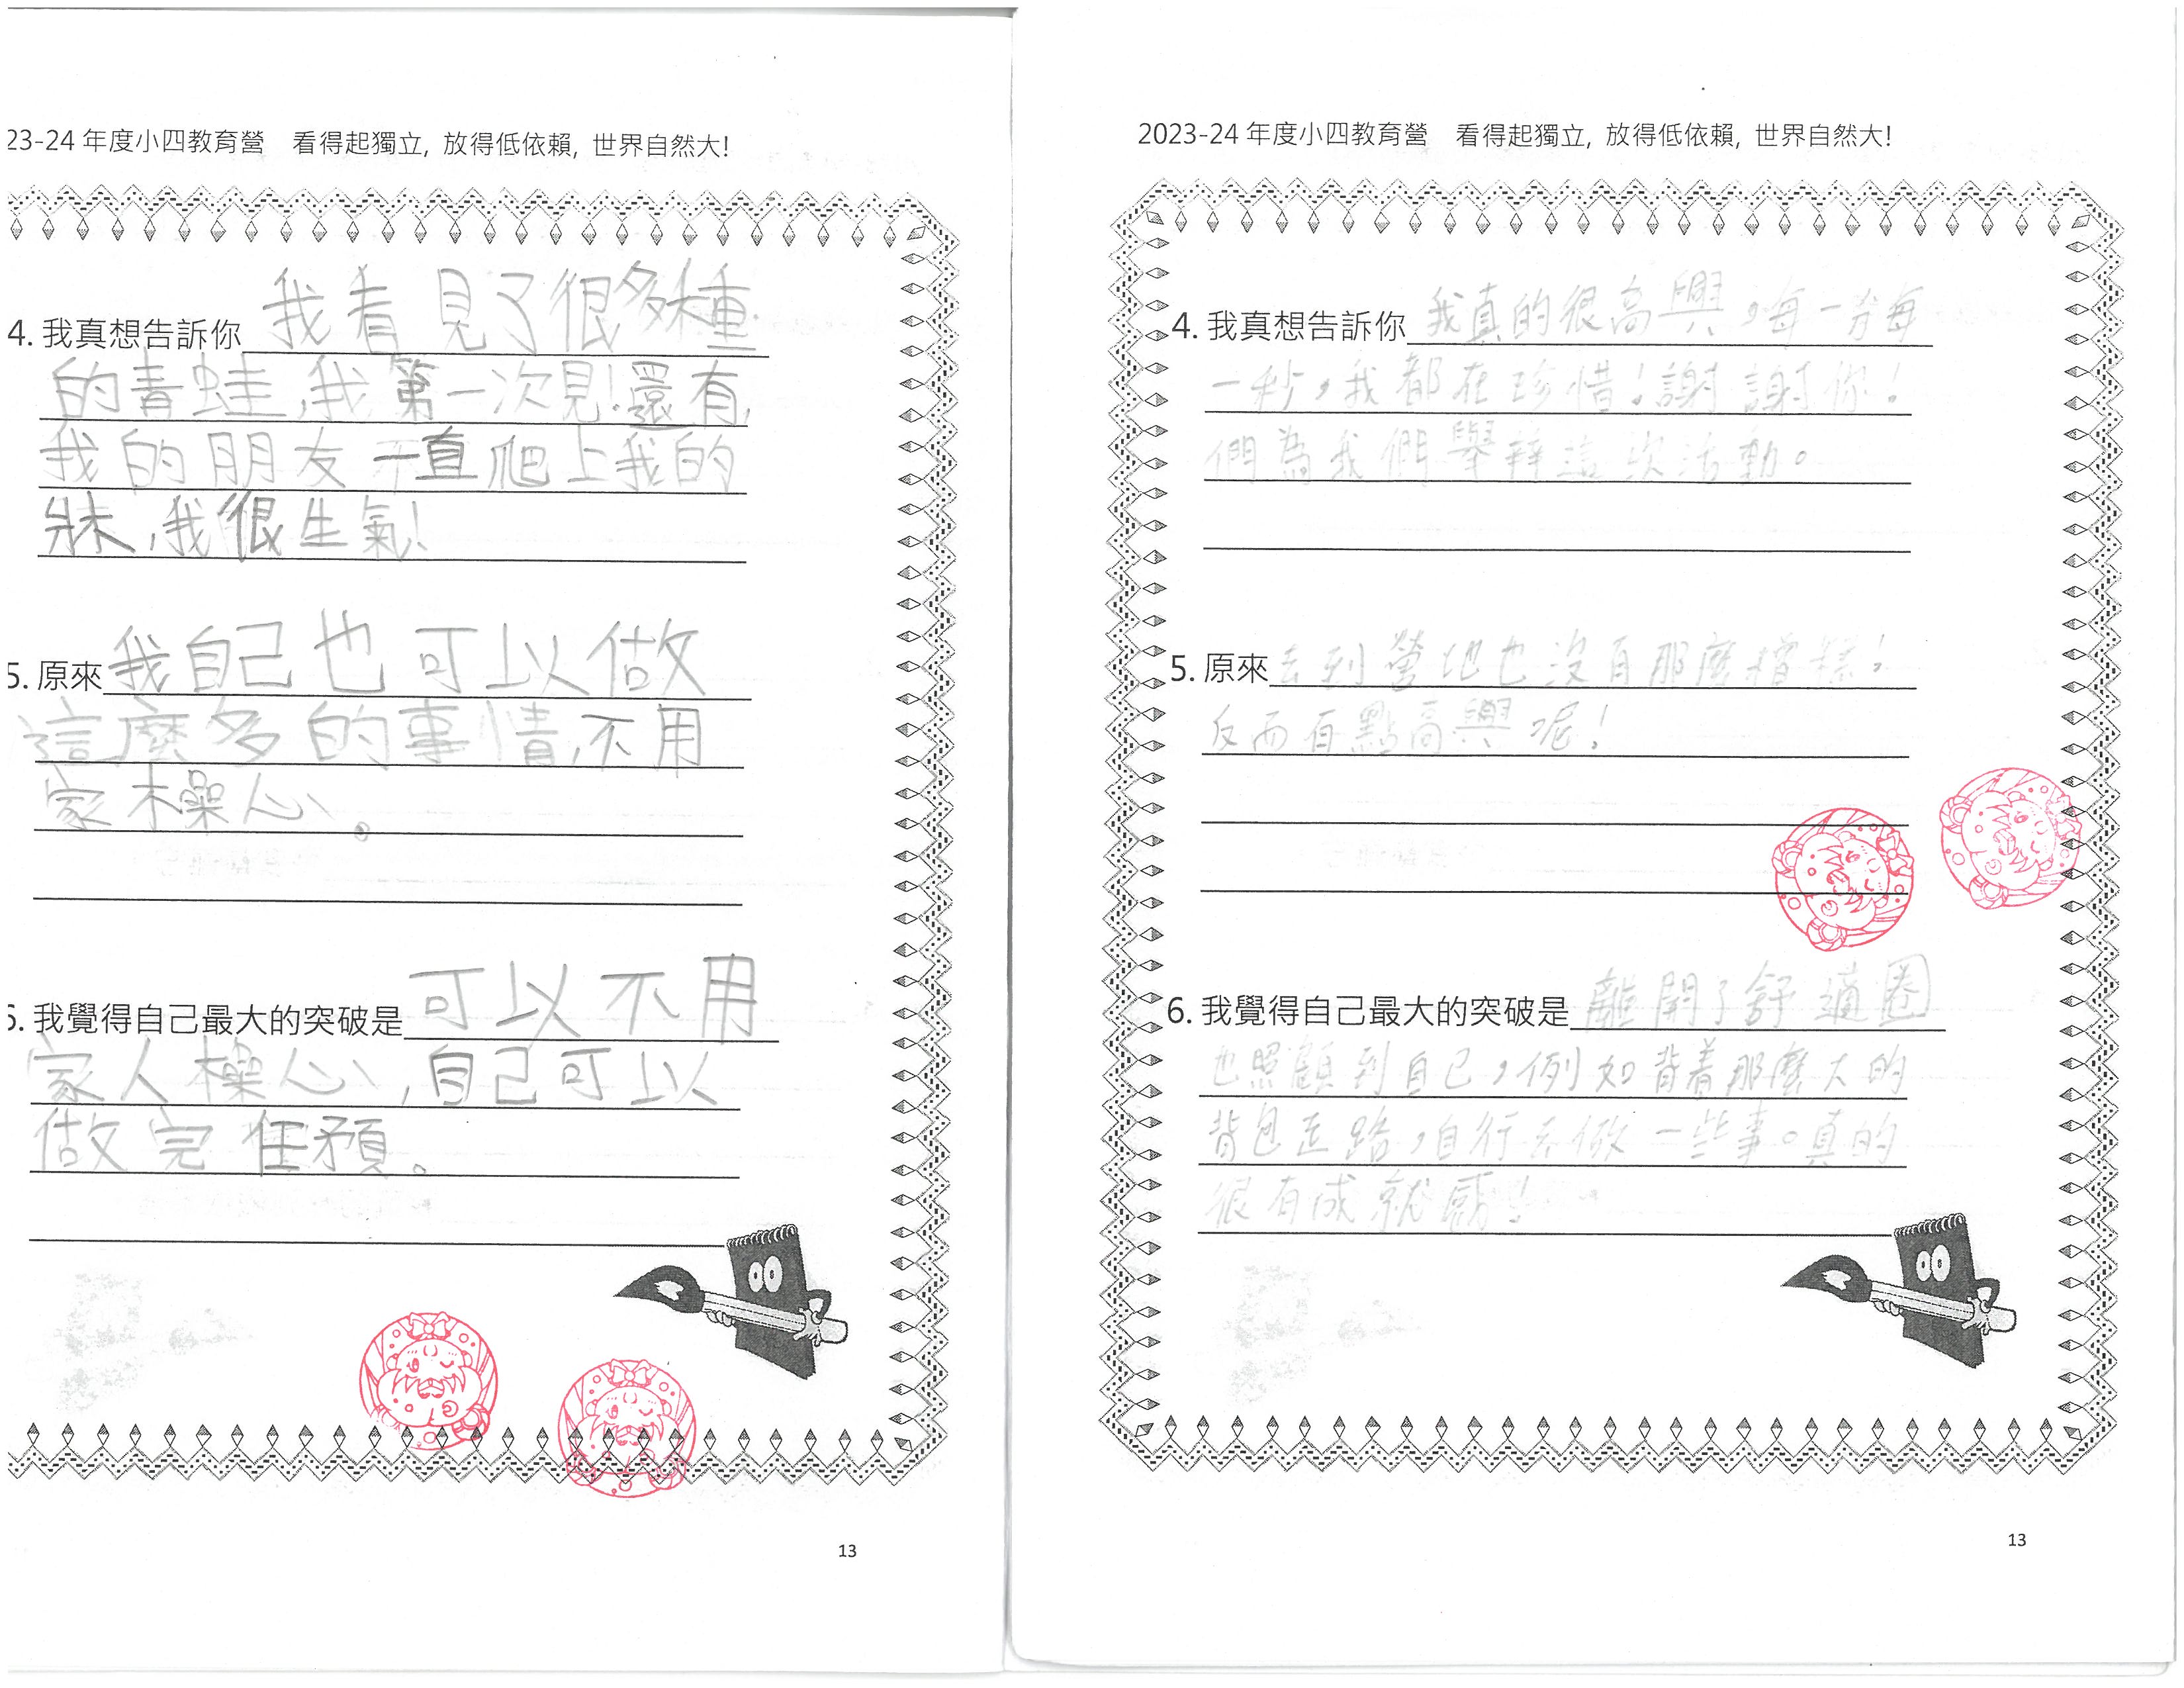 23-24 年度小四教育營 看得起獨立, 放得低依賴, 世界自然大!
4. 我真想告訴你 我看見了很多種
的青蛙,我第一次見!還有,
我的朋友一直爬上我的
牀,我很生氣!
5. 原來 我自己也可以做
這麼多的事情,不用
家操心。
6. 我覺得自己最大的突破是 可以不用
家人操心,自己可以
做完任預。
13
2023-24 年度小四教育營 看得起獨立, 放得低依賴, 世界自然大!
4. 我真想告訴你 我真的很高興,每一分每
一秒,我都在珍惜!謝謝你!
們為我們舉辦這次活動。
5. 原來 去到營地也沒有那麼糟糕!
反而有點高興呢!
6. 我覺得自己最大的突破是 離開了舒適圈
也照顧到自己,例如背着那麼大的
背包走路,自行去做一些事。真的
很有成就感!
13